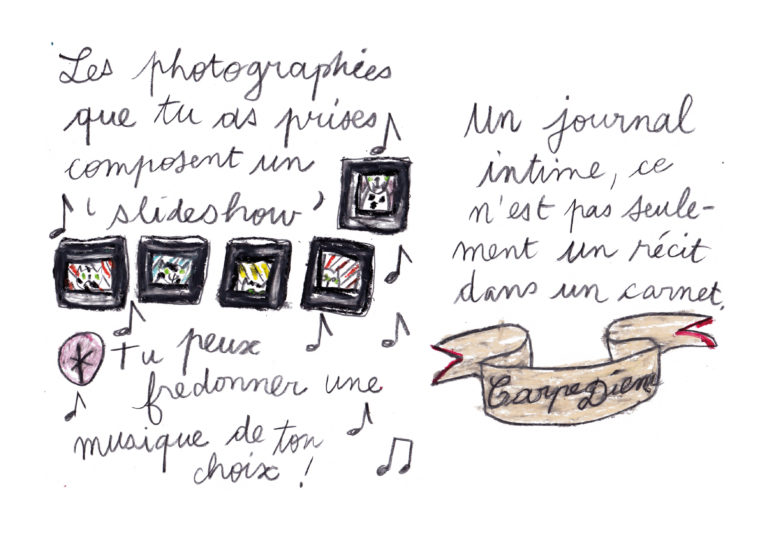 Les photographies
que tu as prises
composent un
'slideshow'
* Tu peux
fredonner une
musique de ton
choix !
Un journal
intime, ce
n'est pas seule-
ment un récit
dans un carnet.
Carpe Diem